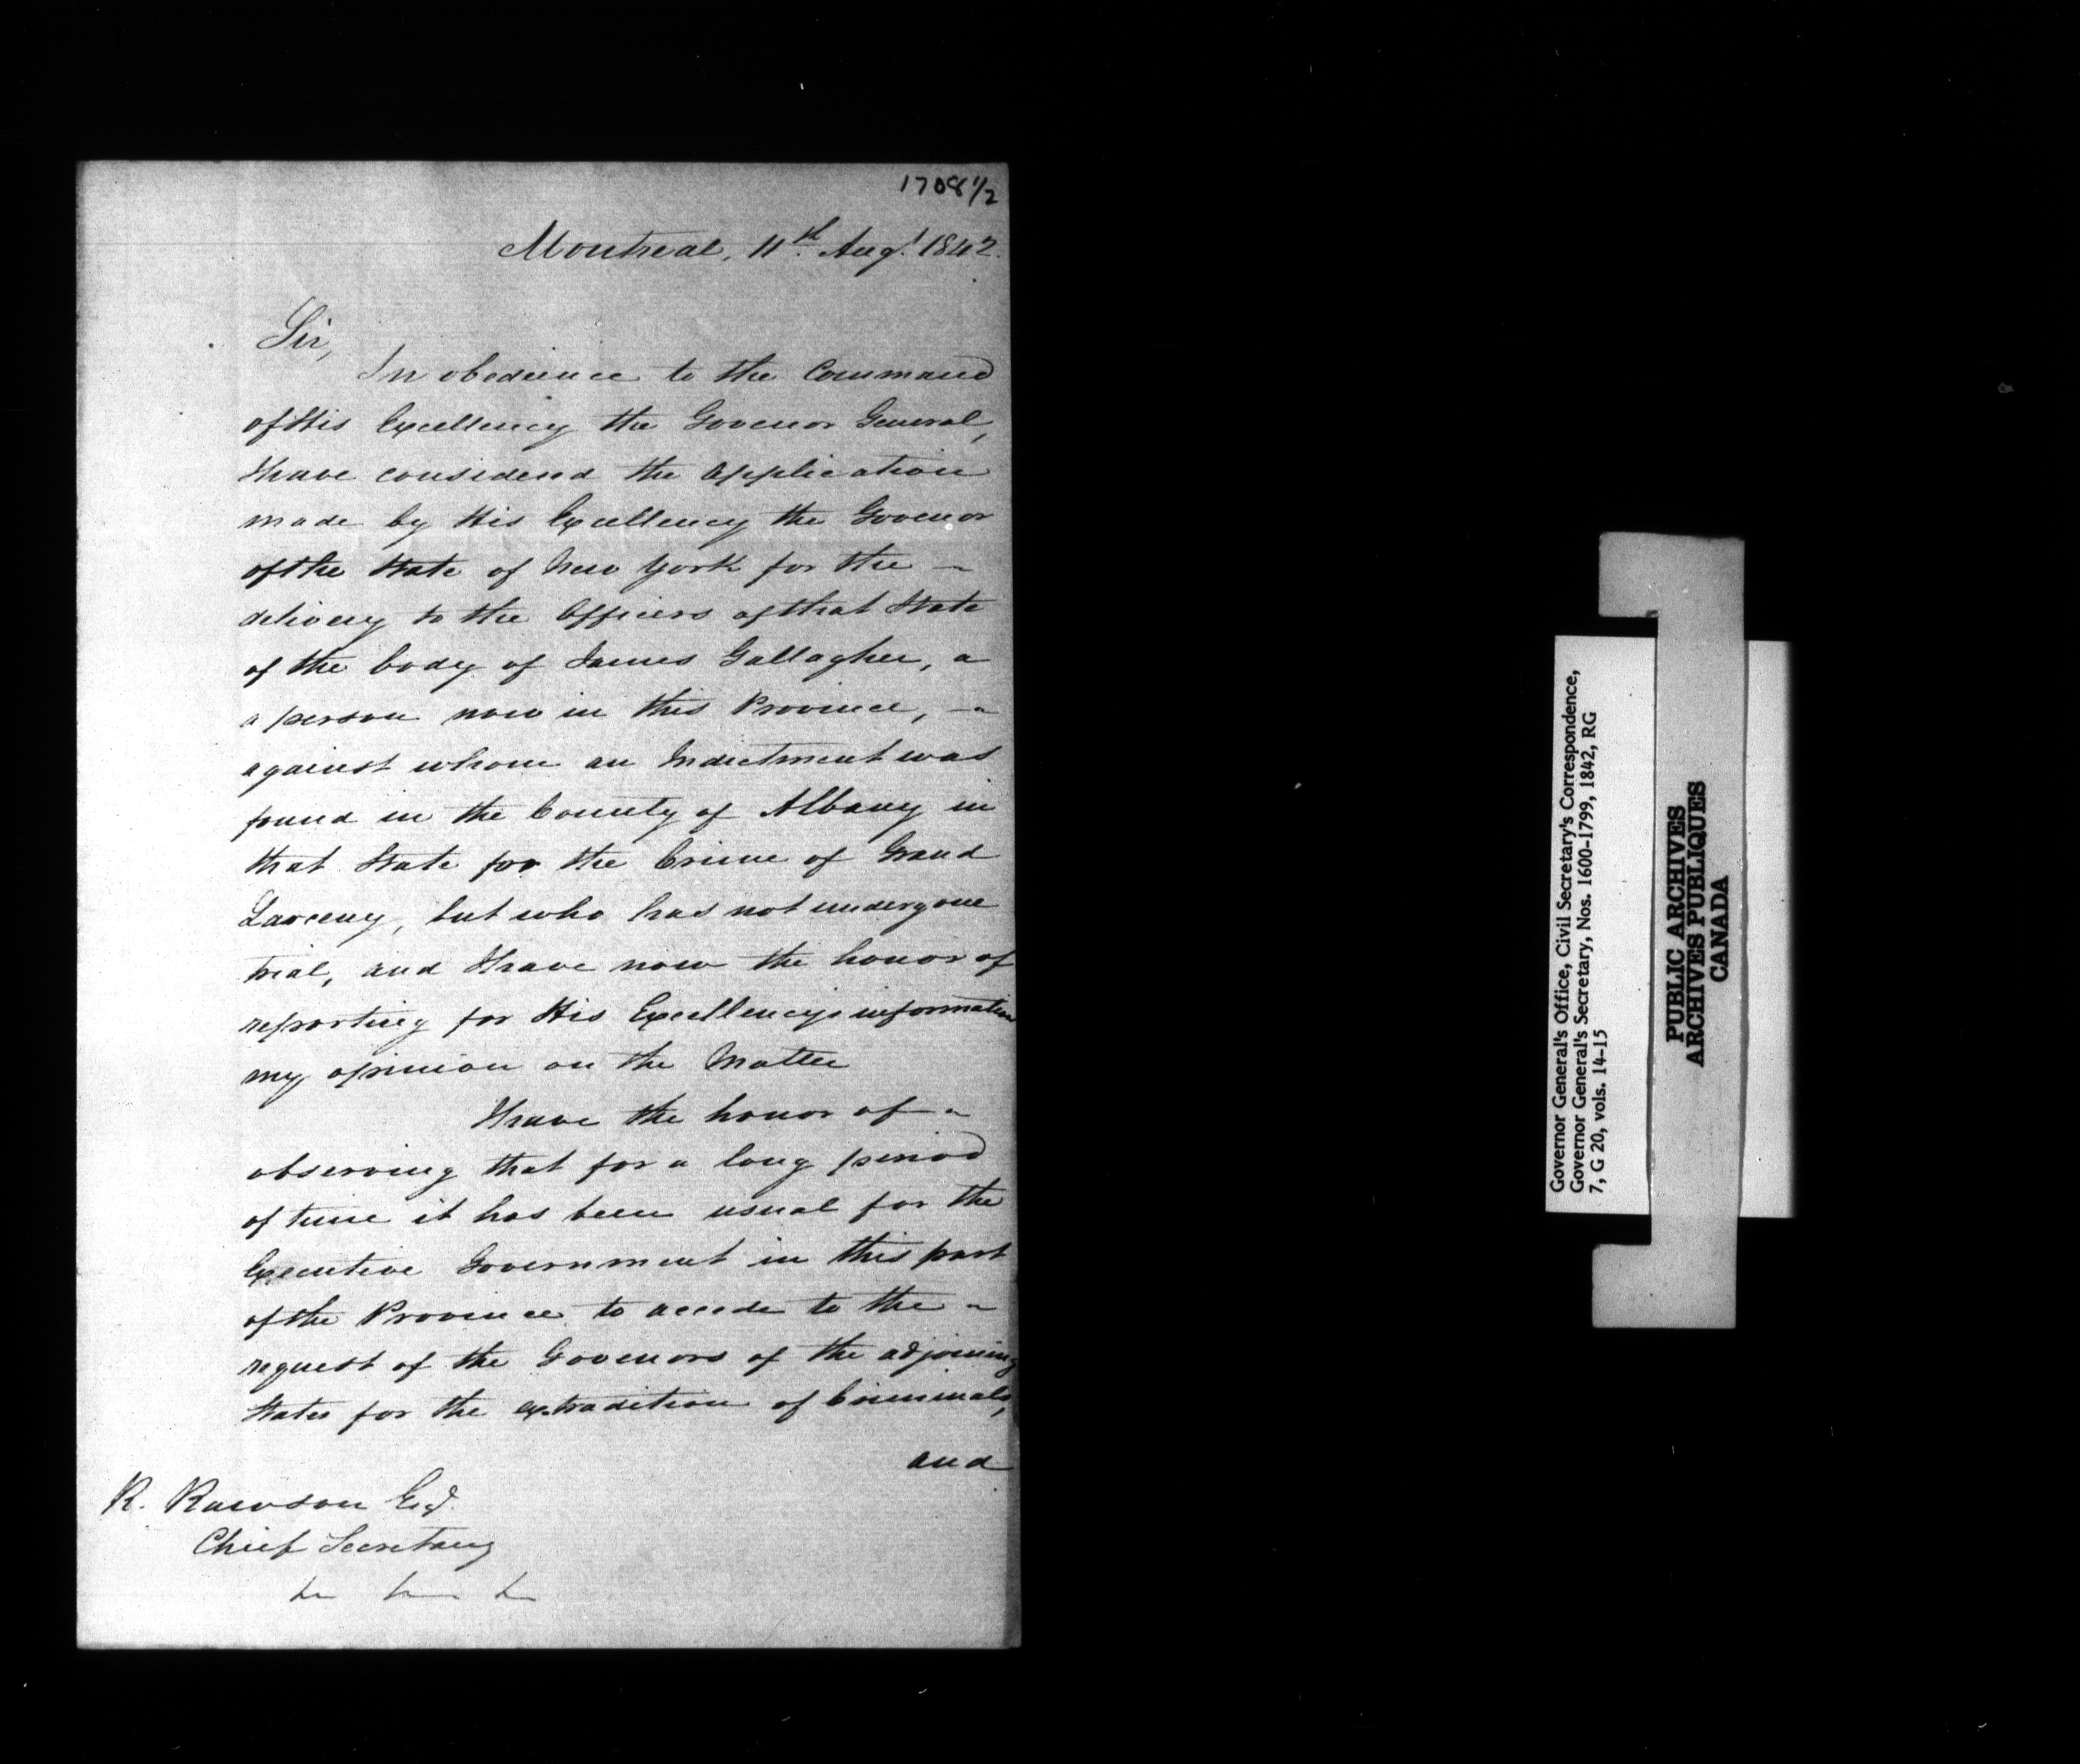 1708 1/2
Montreal, 11th Augt 1842.
Sir,
In obedience to the Command
of His Excellency the Govenor General,
I have considered the Application
made by His Excellency the Govenor
of the State of New York for the –
delivery to the Officers of that State
of the body of James Gallagher, a
a person now in this Province, –
against whom an Indictment was
found in the County of Albany in
that State for the Crime of Grand
Larceny, but who has not undergone
trial, and I have now the honor of
reporting for His Excellency's information
my opinion on the Matter
I have the honor of –
observing that for a long period
of time it has been usual for the
Executive Government in this part
of the Province to accede to the –
request of the Govenors of the adjoining
States for the extradition of Criminals,
and
R. Rawson Esqr.
Chief Secretary
Governor General's Office, Civil Secretary's Correspondence,
Governor General's Secretary, Nos. 1600-1799, 1842, RG
7, G 20, vols. 14-15
PUBLIC ARCHIVES
ARCHIVES PUBLIQUES
CANADA